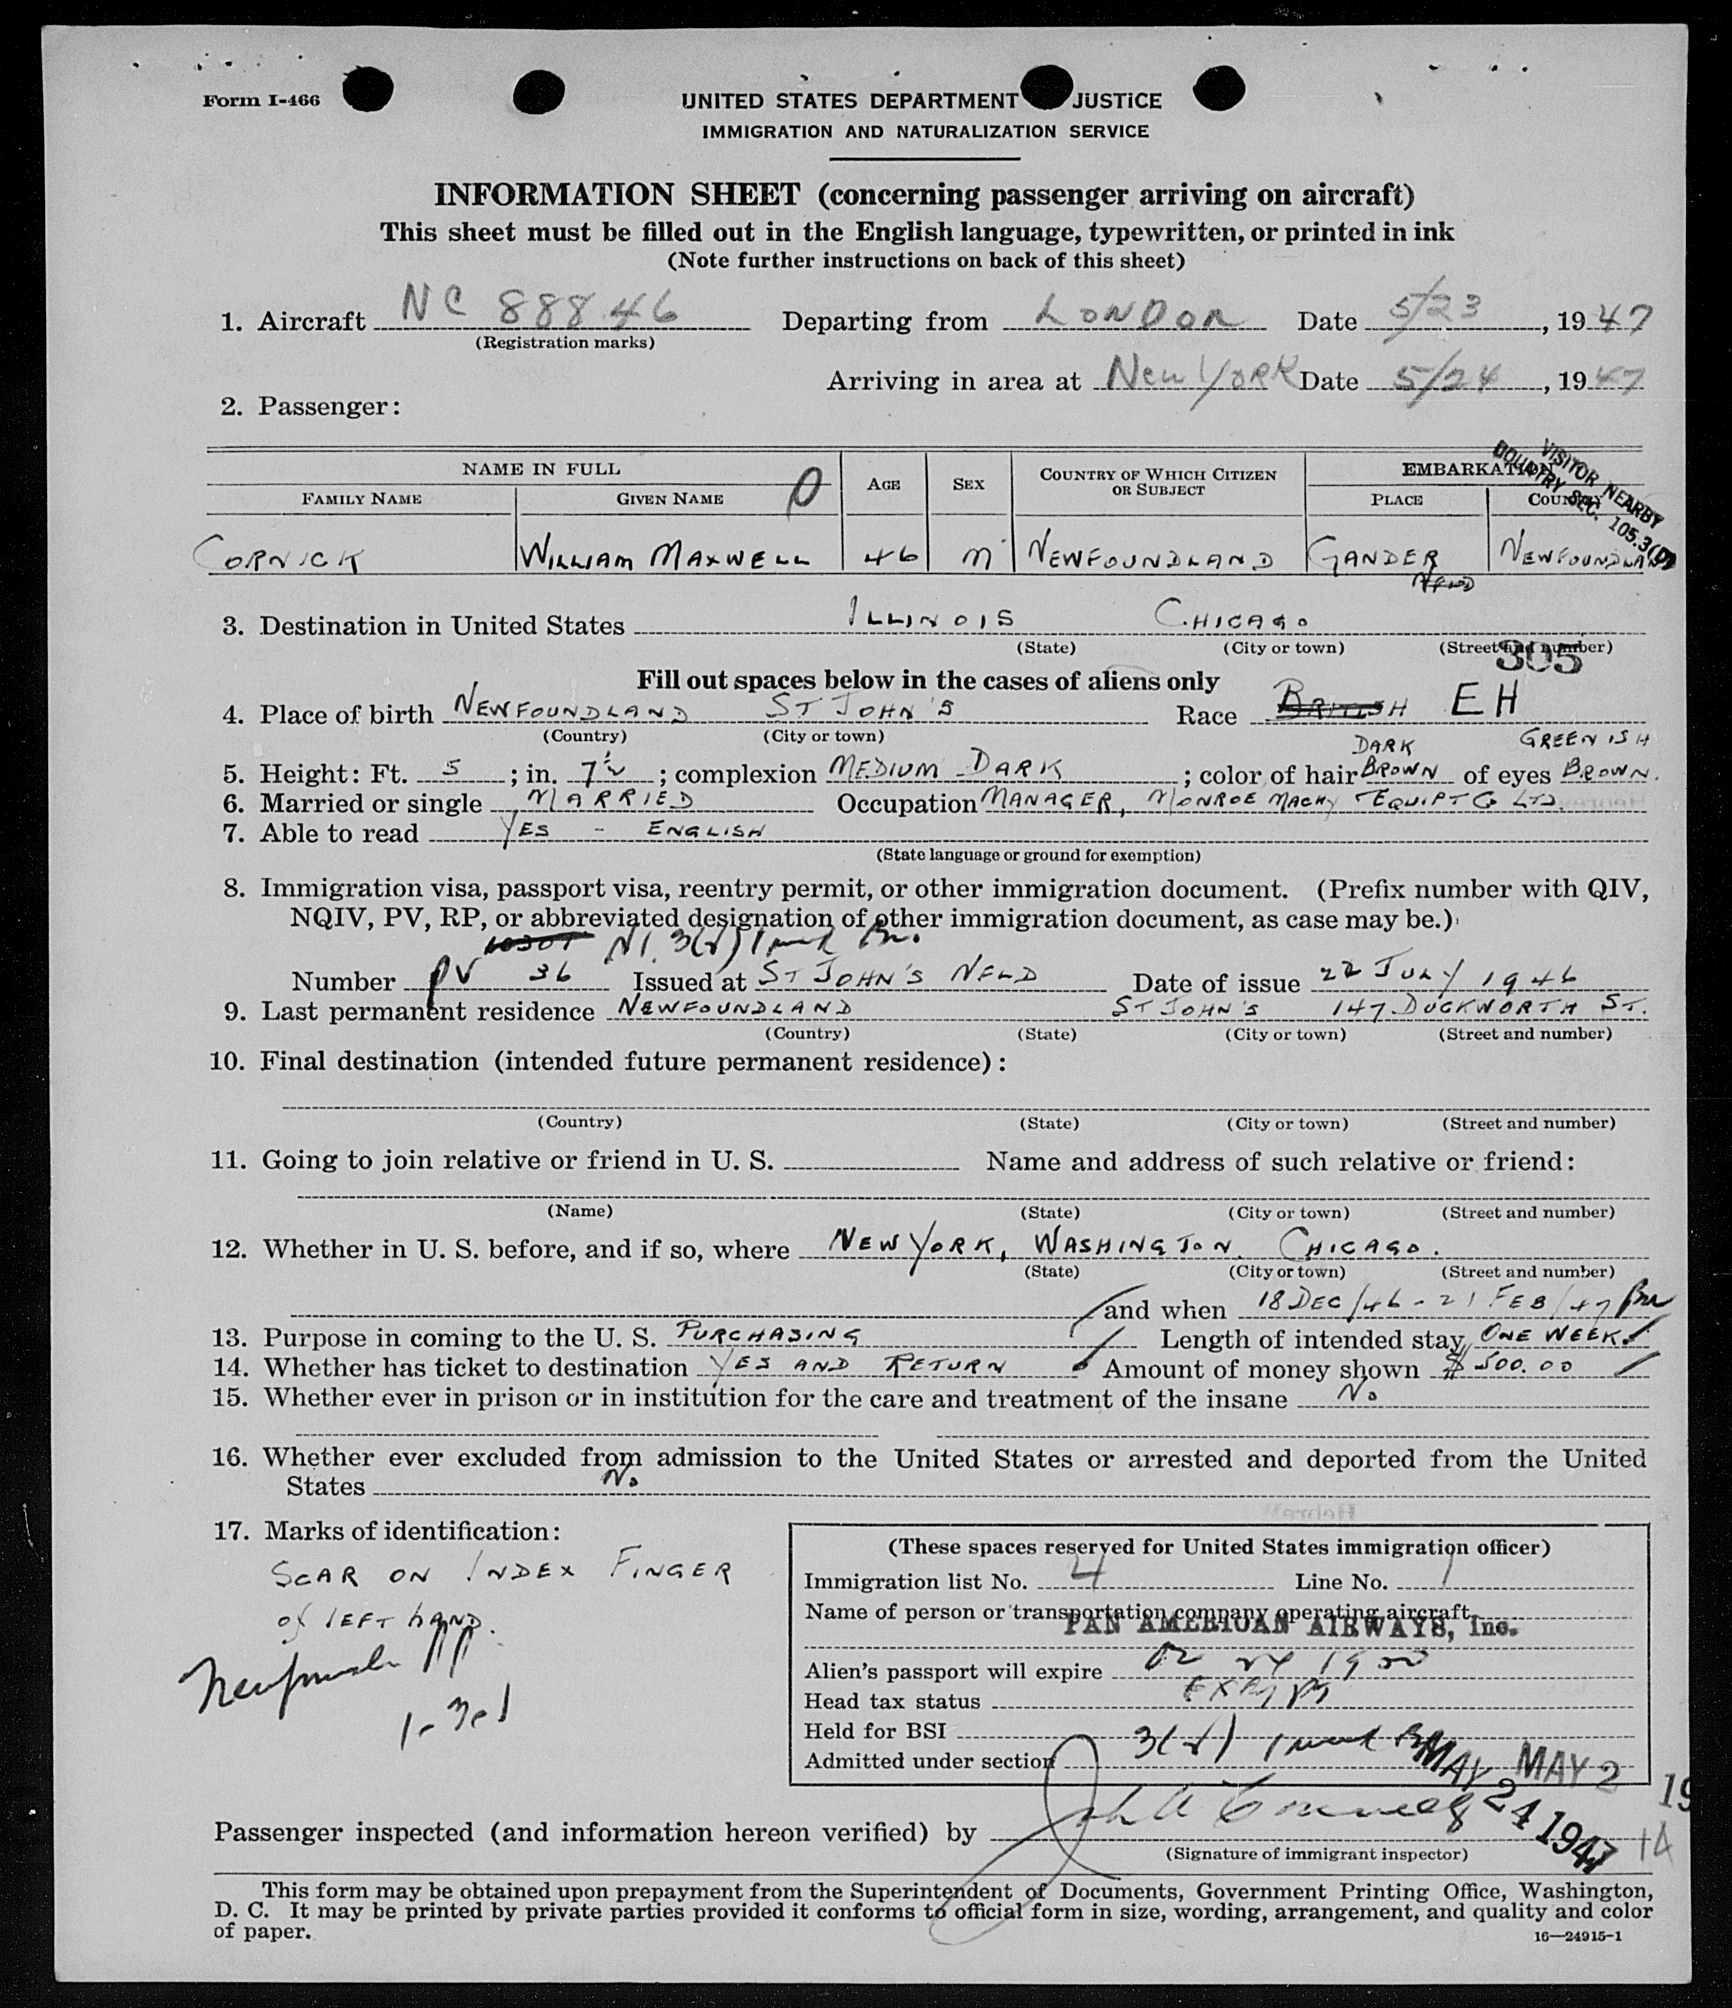 Form I-466
UNITED STATES DEPARTMENT JUSTICE
IMMIGRATION AND NATURALIZATION SERVICE
INFORMATION SHEET (concerning passenger arriving on aircraft)
This sheet must be filled out in the English language, typewritten, or printed in ink
(Note further instructions on back of this sheet)
1. Aircraft NC 88846 Departing from LONDON Date 5/23, 1947
(Registration marks)
Arriving in area at New YORK Date 5/24, 1947
2. Passenger:
VISITOR NEARBY
COUNTRY SEC. 105.3(D)
NAME IN FULL AGE SEX COUNTRY OF WHICH CITIZEN OR SUBJECT EMBARKATION
FAMILY NAME GIVEN NAME PLACE COUNTRY
CORNICK WILLIAM MAXWELL 46 M NEWFOUNDLAND GANDER NEWFOUNDLAND
NFLD
3. Destination in United States ILLINOIS CHICAGO
(State) (City or town) (Street and number)
305
Fill out spaces below in the cases of aliens only
4. Place of birth NEWFOUNDLAND ST JOHN'S Race BRITISH EH
(Country) (City or town)
DARK GREENISH
5. Height: Ft. 5; in. 7½; complexion MEDIUM DARK; color of hair BROWN of eyes BROWN.
6. Married or single MARRIED Occupation MANAGER, MONROE MACHY EQUIPT CO LTD.
7. Able to read YES - ENGLISH
(State language or ground for exemption)
8. Immigration visa, passport visa, reentry permit, or other immigration document. (Prefix number with QIV,
NQIV, PV, RP, or abbreviated designation of other immigration document, as case may be.)
Number PV 36 Issued at ST JOHN'S NFLD Date of issue 22 JULY 1946
9. Last permanent residence NEWFOUNDLAND ST JOHN'S 147 DUCKWORTH ST.
(Country) (State) (City or town) (Street and number)
10. Final destination (intended future permanent residence):
(Country) (State) (City or town) (Street and number)
11. Going to join relative or friend in U. S. Name and address of such relative or friend:
(Name) (State) (City or town) (Street and number)
12. Whether in U. S. before, and if so, where NEW YORK, WASHINGTON. CHICAGO.
(State) (City or town) (Street and number)
and when 18 DEC/46 - 21 FEB/47
13. Purpose in coming to the U. S. PURCHASING Length of intended stay ONE WEEK.
14. Whether has ticket to destination YES AND RETURN Amount of money shown $500.00
15. Whether ever in prison or in institution for the care and treatment of the insane No
16. Whether ever excluded from admission to the United States or arrested and deported from the United
States No
17. Marks of identification:
SCAR ON INDEX FINGER
of LEFT hAND.
(These spaces reserved for United States immigration officer)
Immigration list No. 4 Line No. 1
Name of person or transportation company operating aircraft
PAN AMERICAN AIRWAYS, Inc.
Alien's passport will expire
Head tax status EXEMPT
Held for BSI
Admitted under section
MAY 24 1947
MAY 2
Passenger inspected (and information hereon verified) by
(Signature of immigrant inspector)
This form may be obtained upon prepayment from the Superintendent of Documents, Government Printing Office, Washington,
D. C. It may be printed by private parties provided it conforms to official form in size, wording, arrangement, and quality and color
of paper.
16—24915-1